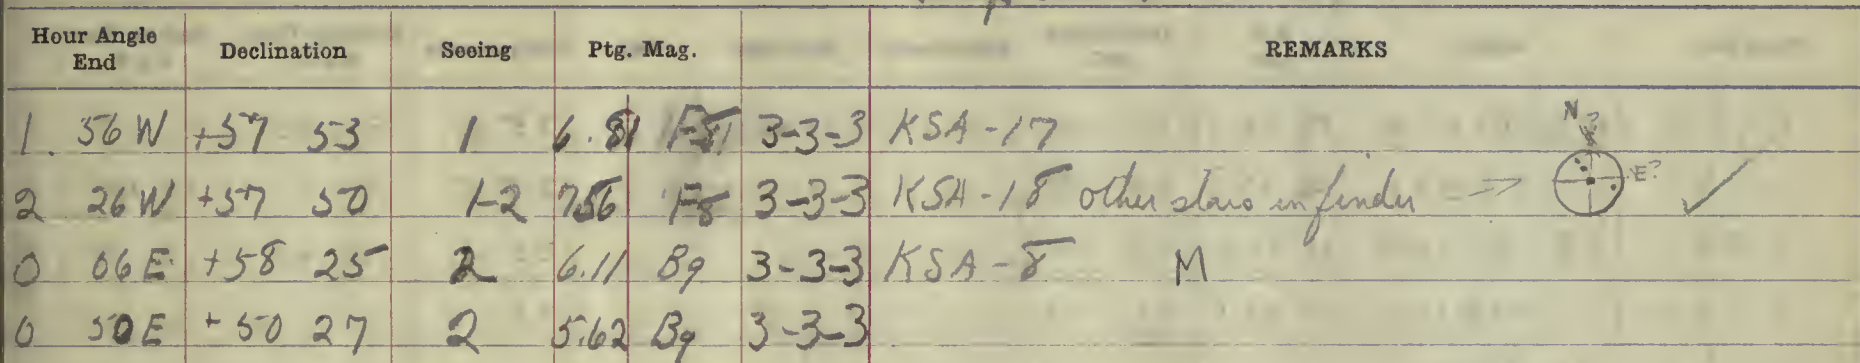 Hour Angle End Declination Seeing Ptg. Mag. REMARKS
1 56 W +57 53 1 6.81 3-3-3 KSA-17 N?
2 26 W +57 50 1-2 7.56 F8 3-3-3 KSA-18 other stars in finder → E? ✓
0 06 E +58 25 2 6.11 B9 3-3-3 KSA-8 M
0 50 E +50 27 2 5.62 B9 3-3-3